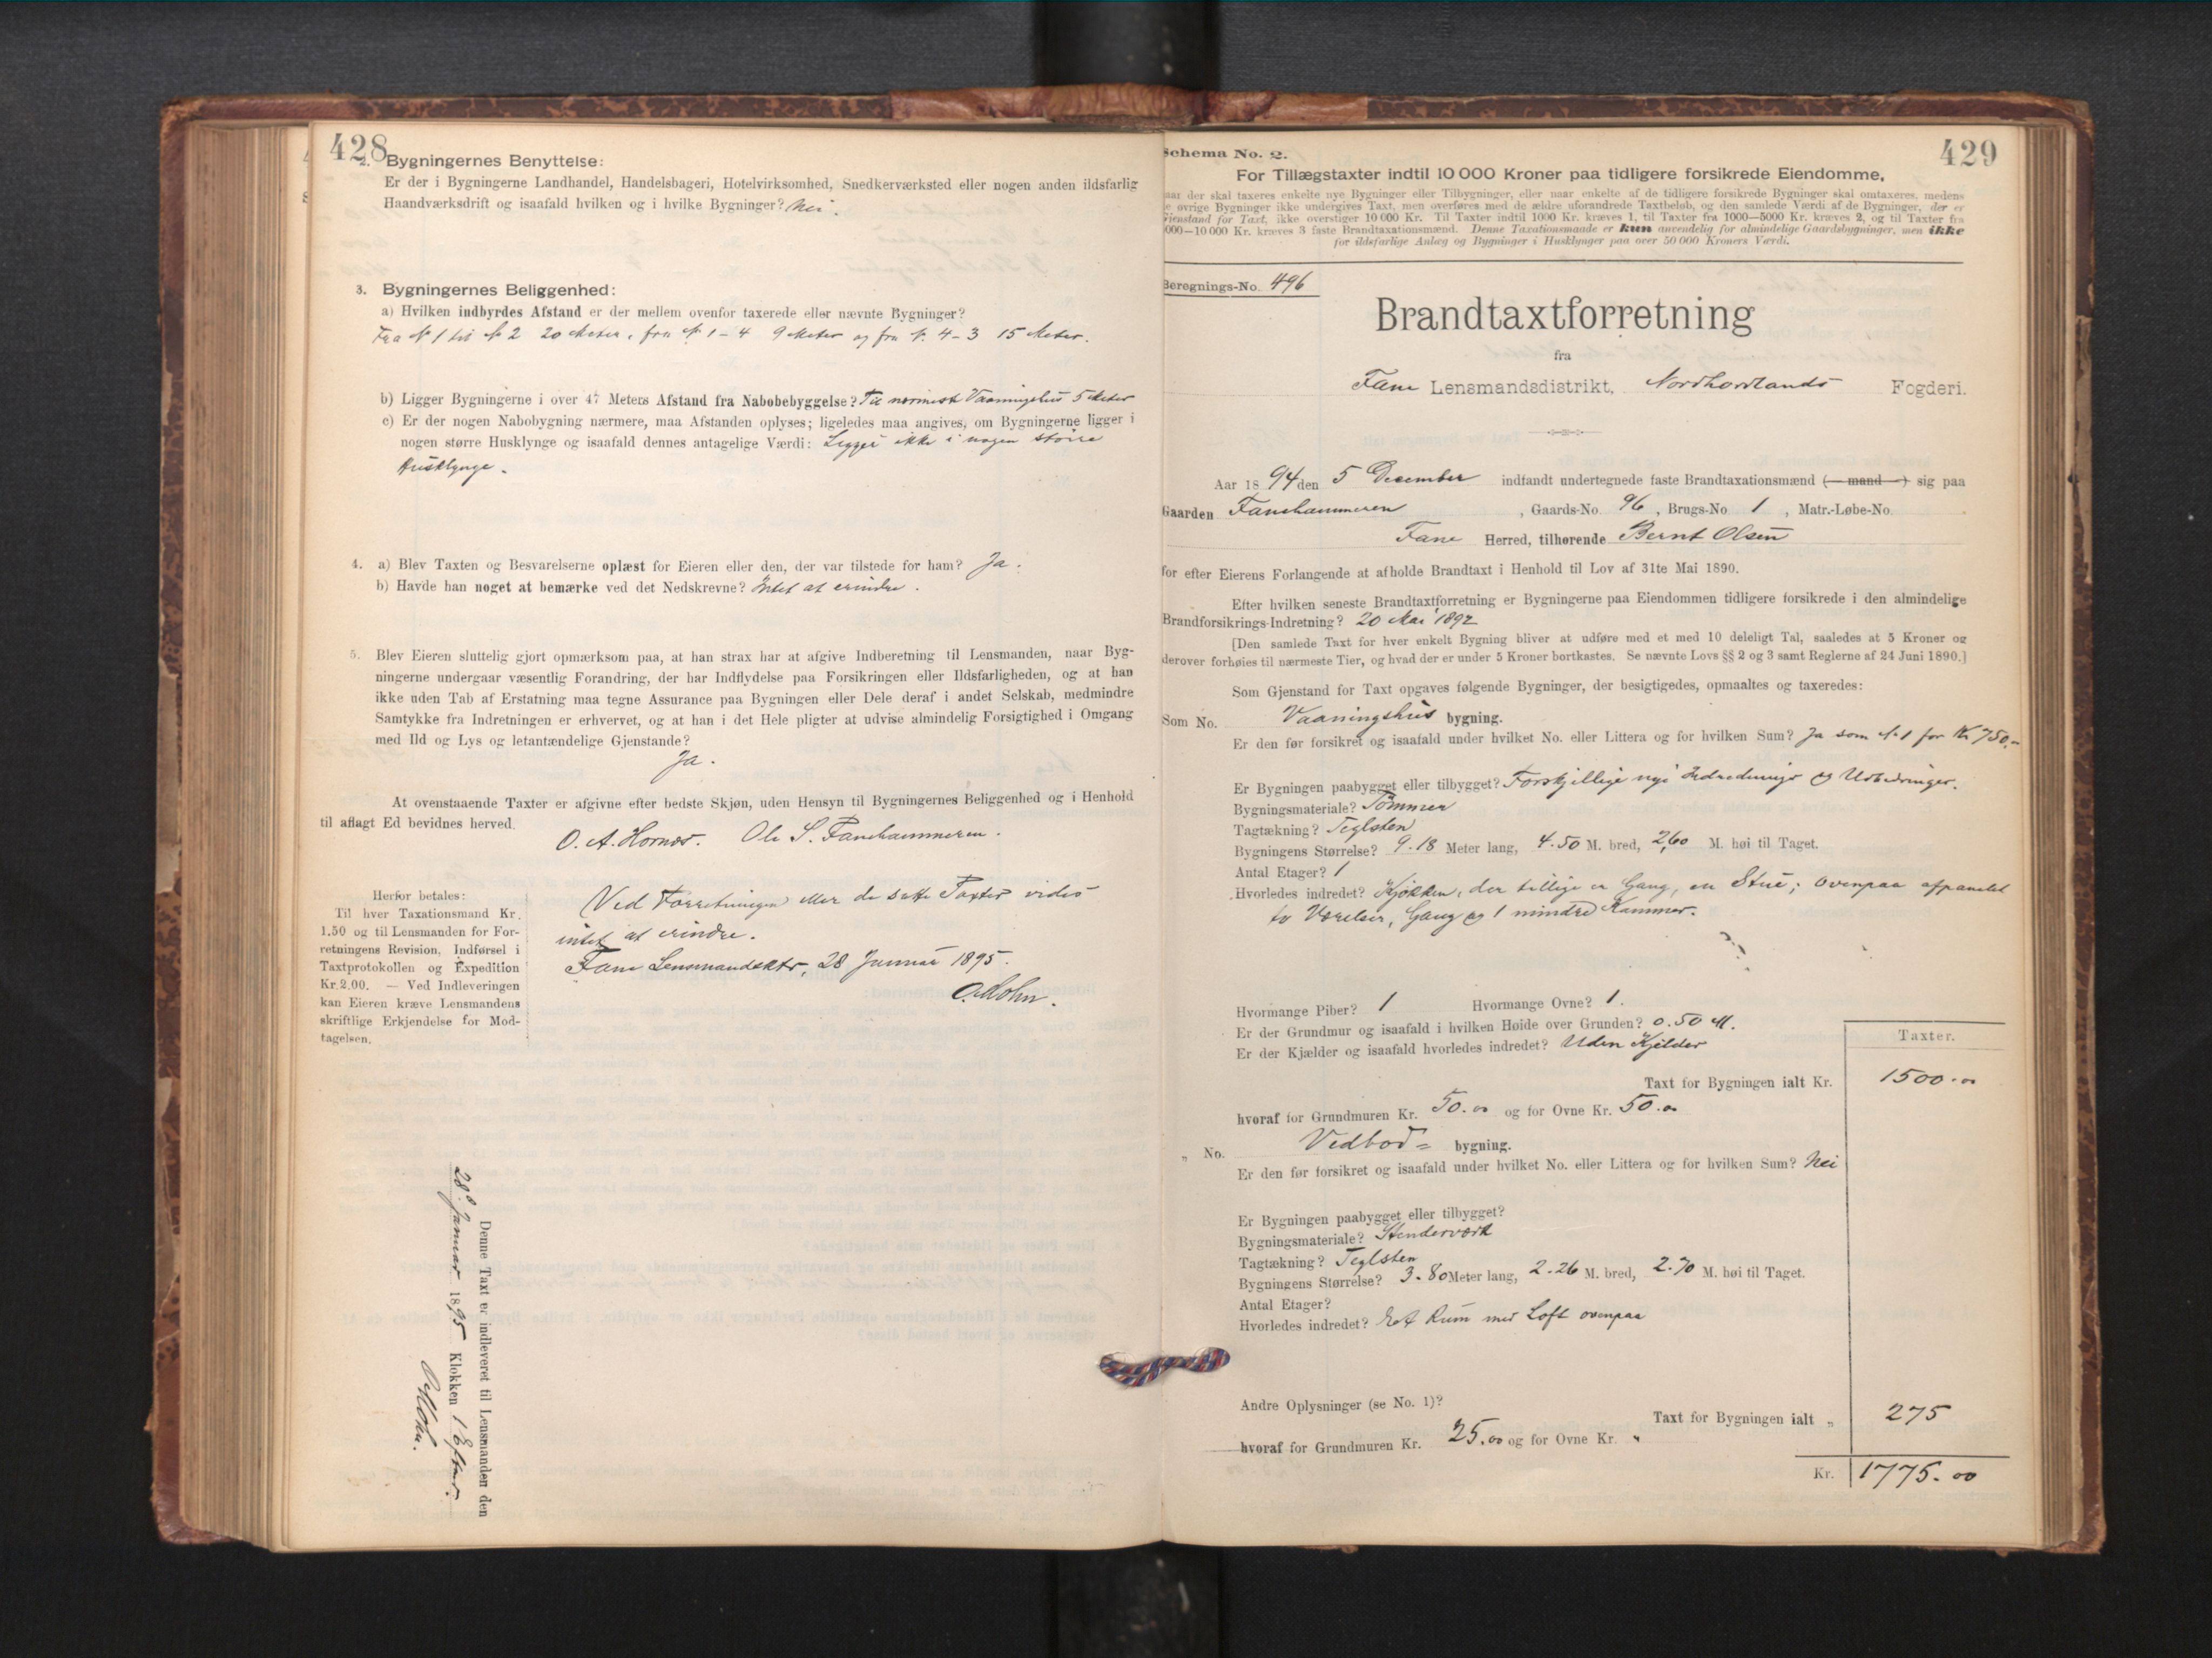 428
2. Bygningernes Benyttelse:
Er der i Bygningerne Landhandel, Handelsbageri, Hotelvirksomhed, Snedkerværksted eller nogen anden ildsfarlig
Haandværksdrift og isaafald hvilken og i hvilke Bygninger? Nei.
3. Bygningernes Beliggenhed:
a) Hvilken indbyrdes Afstand er der mellem ovenfor taxerede eller nævnte Bygninger?
Fra N 1 til N 2 20 Meter, fra N 1 - 4 9 Meter og fra N. 4 - 3 15 Meter.
b) Ligger Bygningerne i over 47 Meters Afstand fra Nabobebyggelse? Til nærmeste Vaaningshus 5 Meter
c) Er der nogen Nabobygning nærmere, maa Afstanden oplyses; ligeledes maa angives, om Bygningerne ligger i
nogen større Husklynge og isaafald dennes antagelige Værdi: Ligger ikke i nogen større
Husklynge.
4. a) Blev Taxten og Besvarelserne oplæst for Eieren eller den, der var tilstede for ham? Ja.
b) Havde han noget at bemærke ved det Nedskrevne? Intet at erindre.
5. Blev Eieren sluttelig gjort opmærksom paa, at han strax har at afgive Indberetning til Lensmanden, naar Byg-
ningerne undergaar væsentlig Forandring, der har Indflydelse paa Forsikringen eller Ildsfarligheden, og at han
ikke uden Tab af Erstatning maa tegne Assurance paa Bygningen eller Dele deraf i andet Selskab, medmindre
Samtykke fra Indretningen er erhvervet, og at han i det Hele pligter at udvise almindelig Forsigtighed i Omgang
med Ild og Lys og letantændelige Gjenstande?
Ja.
At ovenstaaende Taxter er afgivne efter bedste Skjøn, uden Hensyn til Bygningernes Beliggenhed og i Henhold
til aflagt Ed bevidnes herved.
O. A. Hornes. Ole S. Fanehammeren.
Herfor betales:
Til hver Taxationsmand Kr.
1.50 og til Lensmanden for For-
retningens Revision, Indførsel i
Taxtprotokollen og Expedition
Kr. 2.00. — Ved Indleveringen
kan Eieren kræve Lensmandens
skriftlige Erkjendelse for Mod-
tagelsen.
Ved Forretningen eller de satte Taxter vides
intet at erindre.
Fane Lensmandsktr, 28 Januar 1895.
Denne Taxt er indleveret til Lensmanden den
28de Januar 1895 Klokken 1 Efterm.
429
Schema No. 2.
For Tillægstaxter indtil 10 000 Kroner paa tidligere forsikrede Eiendomme,
aar der skal taxeres enkelte nye Bygninger eller Tilbygninger, eller naar enkelte af de tidligere forsikrede Bygninger skal omtaxeres, medens
e øvrige Bygninger ikke undergives Taxt, men overføres med de ældre uforandrede Taxtbeløb, og den samlede Værdi af de Bygninger, der er
Gienstand for Taxt, ikke overstiger 10 000 Kr. Til Taxter indtil 1000 Kr. kræves 1, til Taxter fra 1000—5000 Kr. kræves 2, og til Taxter fra
000—10 000 Kr. kræves 3 faste Brandtaxationsmænd. Denne Taxationsmaade er kun anvendelig for almindelige Gaardsbygninger, men ikke
for ildsfarlige Anlæg og Bygninger i Husklynger paa over 50 000 Kroners Værdi.
Beregnings-No. 496
Brandtaxtforretning
fra
Fane Lensmandsdistrikt, Nordhordlands Fogderi.
Aar 1894 den 5 December indfandt undertegnede faste Brandtaxationsmænd (— mand —) sig paa
Gaarden Fanehammeren, Gaards-No. 96, Brugs-No 1, Matr.-Løbe-No.
Fane Herred, tilhørende Bernt Olsen
for efter Eierens Forlangende at afholde Brandtaxt i Henhold til Lov af 31te Mai 1890.
Efter hvilken seneste Brandtaxtforretning er Bygningerne paa Eiendommen tidligere forsikrede i den almindelige
Brandforsikrings-Indretning? 20 Mai 1892
[Den samlede Taxt for hver enkelt Bygning bliver at udføre med et med 10 deleligt Tal, saaledes at 5 Kroner og
derover forhøies til nærmeste Tier, og hvad der er under 5 Kroner bortkastes. Se nævnte Lovs §§ 2 og 3 samt Reglerne af 24 Juni 1890.]
Som Gjenstand for Taxt opgaves følgende Bygninger, der besigtigedes, opmaaltes og taxeredes:
Som No. Vaaningshus bygning.
Er den før forsikret og isaafald under hvilket No. eller Littera og for hvilken Sum? Ja som N. 1 for Kr 750,-
Er Bygningen paabygget eller tilbygget? Forskjellige nye Indredninger og Udbedringer.
Bygningsmateriale? Tømmer
Tagtækning? Teglsten
Bygningens Størrelse? 9.18 Meter lang, 4.50 M. bred, 2,60 M. høi til Taget.
Antal Etager? 1
Hvorledes indredet? Kjøkken, der tillige er Gang, en Stue; ovenpaa afpanelet
to Værelser, Gang og 1 mindre Kammer.
Hvormange Piber? 1 Hvormange Ovne? 1.
Er der Grundmur og isaafald i hvilken Høide over Grunden? 0.50 M.
Er der Kjælder og isaafald hvorledes indredet? Uden Kjelder
Taxter.
Taxt for Bygningen ialt Kr. 1500.00
hvoraf for Grundmuren Kr. 50.00 og for Ovne Kr. 50.00
„ No. Vedbod= bygning.
Er den før forsikret og isaafald under hvilket No. eller Littera og for hvilken Sum? Nei
Er Bygningen paabygget eller tilbygget?
Bygningsmateriale? Stenderværk
Tagtækning? Teglsten
Bygningens Størrelse? 3.80 Meter lang, 2.26 M. bred, 2.70 M. høi til Taget.
Antal Etager?
Hvorledes indredet? Et Rum med Loft ovenpaa
Andre Oplysninger (se No. 1)?
Taxt for Bygningen ialt „ 275
hvoraf for Grundmuren Kr. 25.00 og for Ovne Kr. „
Kr. 1775.00